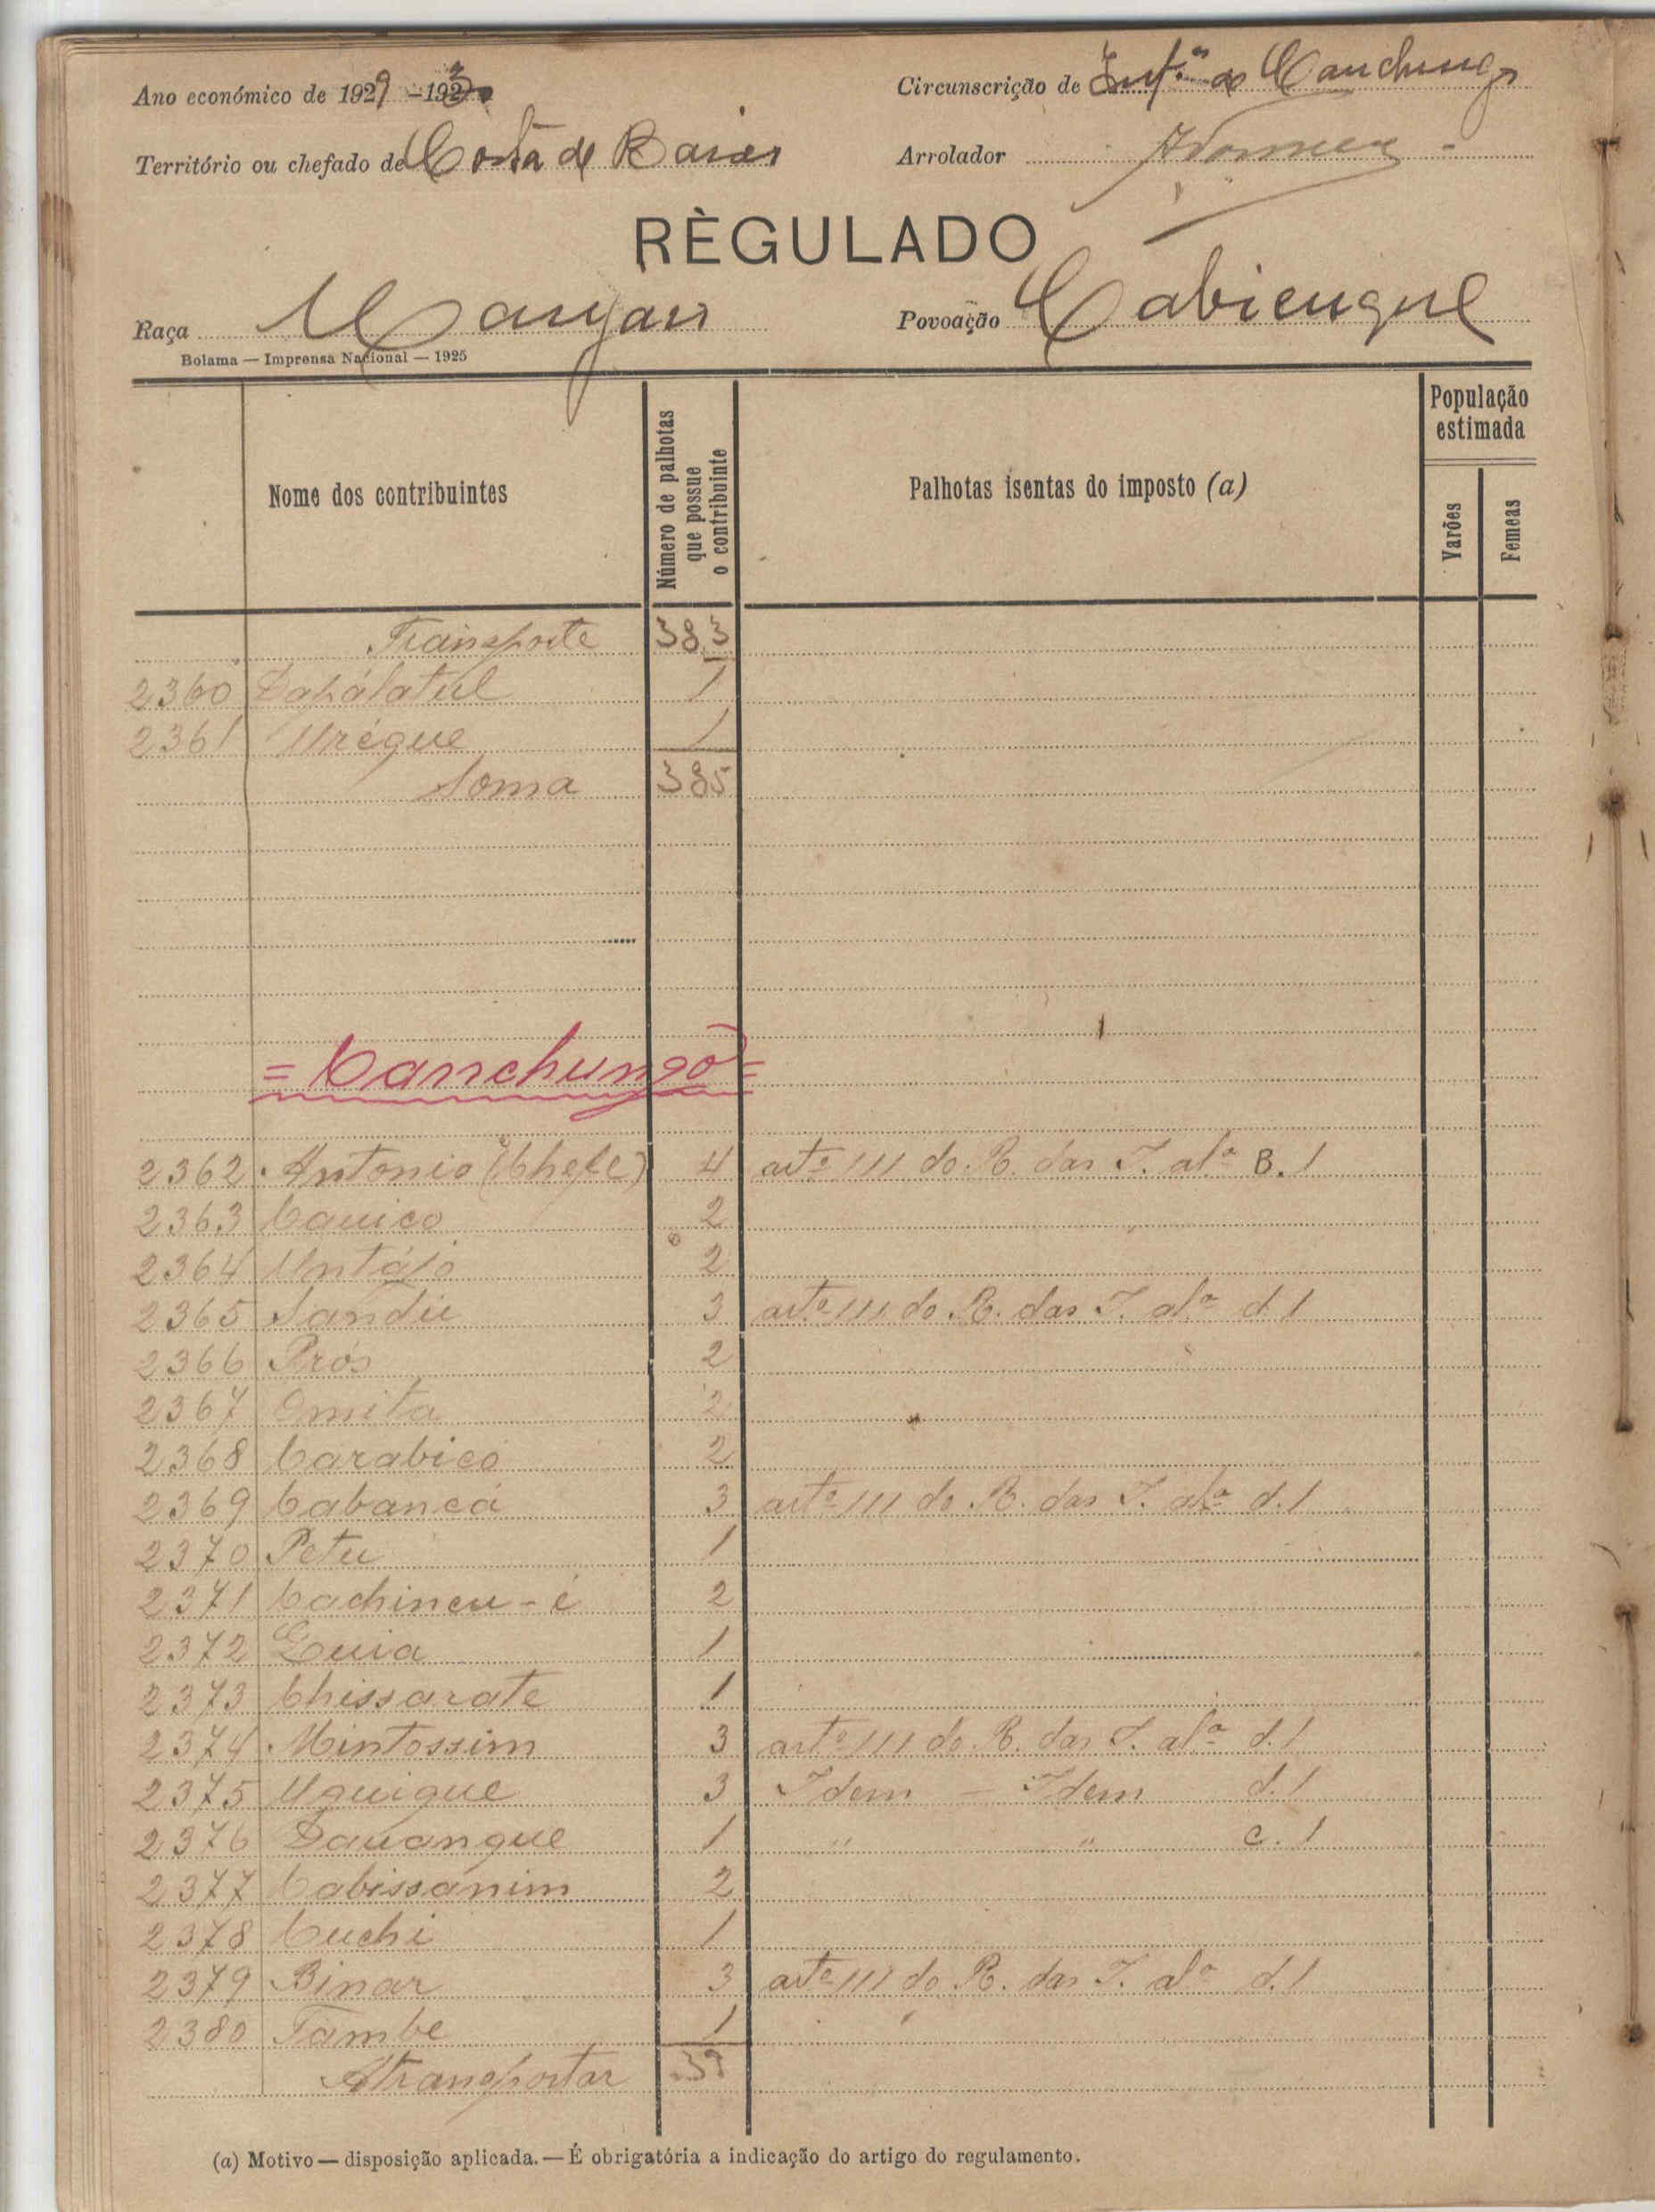 Ano económico de 1929 -1930 Circunscrição de Int.ª de Canchungo
Território ou chefado de Costa de Baixo Arrolador
RÈGULADO
Raça Manjaco Povoação Cabienque
Bolama — Imprensa Nacional — 1925
Nome dos contribuintes
Número de palhotas que possue o contribuinte
Palhotas isentas do imposto (a)
População estimada
Varões
Femeas
Transporte 383
2360 Dapálatul 1
2361 Urégue 1
Soma 385
= Canchungo =
2362 Antonio (Chefe) 4 artº 111 do R. das I. alª B. 1
2363 Cauico 2
2364 Untáió 2
2365 Sandú 3 artº 111 do R. das I. alª d. 1
2366 Prós 2
2367 Omita 2
2368 Carabicó 2
2369 Cabancá 3 artº 111 do R. das I. alª d. 1
2370 Petu 1
2371 Cachincu-é 2
2372 Quia 1
2373 Chissarate 1
2374 Mintossim 3 artº 111 do R. das I. alª d. 1
2375 Uquigue 3 Idem — Idem d. 1
2376 Dauangue 1 " " c. 1
2377 Cabissánim 2
2378 Cuchi 1
2379 Binar 3 artº 111 do R. das I. alª d. 1
2380 Tambe 1
A transportar 39
(a) Motivo — disposição aplicada. — É obrigatória a indicação do artigo do regulamento.